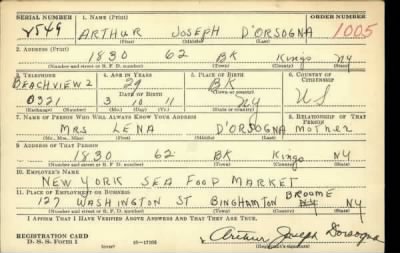 SERIAL NUMBER 1. NAME (Print) ORDER NUMBER
V549 ARTHUR JOSEPH D'ORSOGNA 1005
(First) (Middle) (Last)
2. ADDRESS (Print)
1830 62 BK Kings NY
(Number and street or R. F. D. number) (Town) (County) (State)
3. TELEPHONE 4. AGE IN YEARS 5. PLACE OF BIRTH 6. COUNTRY OF CITIZENSHIP
BEACHVIEW 2 29 BK
DATE OF BIRTH (Town or county)
0321 3 10 11 NY US
(Mo.) (Day) (Yr.) (State or country)
7. NAME OF PERSON WHO WILL ALWAYS KNOW YOUR ADDRESS 8. RELATIONSHIP OF THAT PERSON
MRS LENA D'ORSOGNA mother
(Mr., Mrs., Miss) (First) (Middle) (Last)
9. ADDRESS OF THAT PERSON
1830 62 BK Kings NY
(Number and street or R. F. D. number) (Town) (County) (State)
10. EMPLOYER'S NAME
NEW YORK SEA FOOD MARKET
11. PLACE OF EMPLOYMENT OR BUSINESS BROOME
127 WASHINGTON ST BINGHAMTON NY NY
(Number and street or R. F. D. number) (Town) (County) (State)
I AFFIRM THAT I HAVE VERIFIED ABOVE ANSWERS AND THAT THEY ARE TRUE.
REGISTRATION CARD
D. S. S. FORM 1 (over) Arthur Joseph Dorsogna
(Registrant's signature)